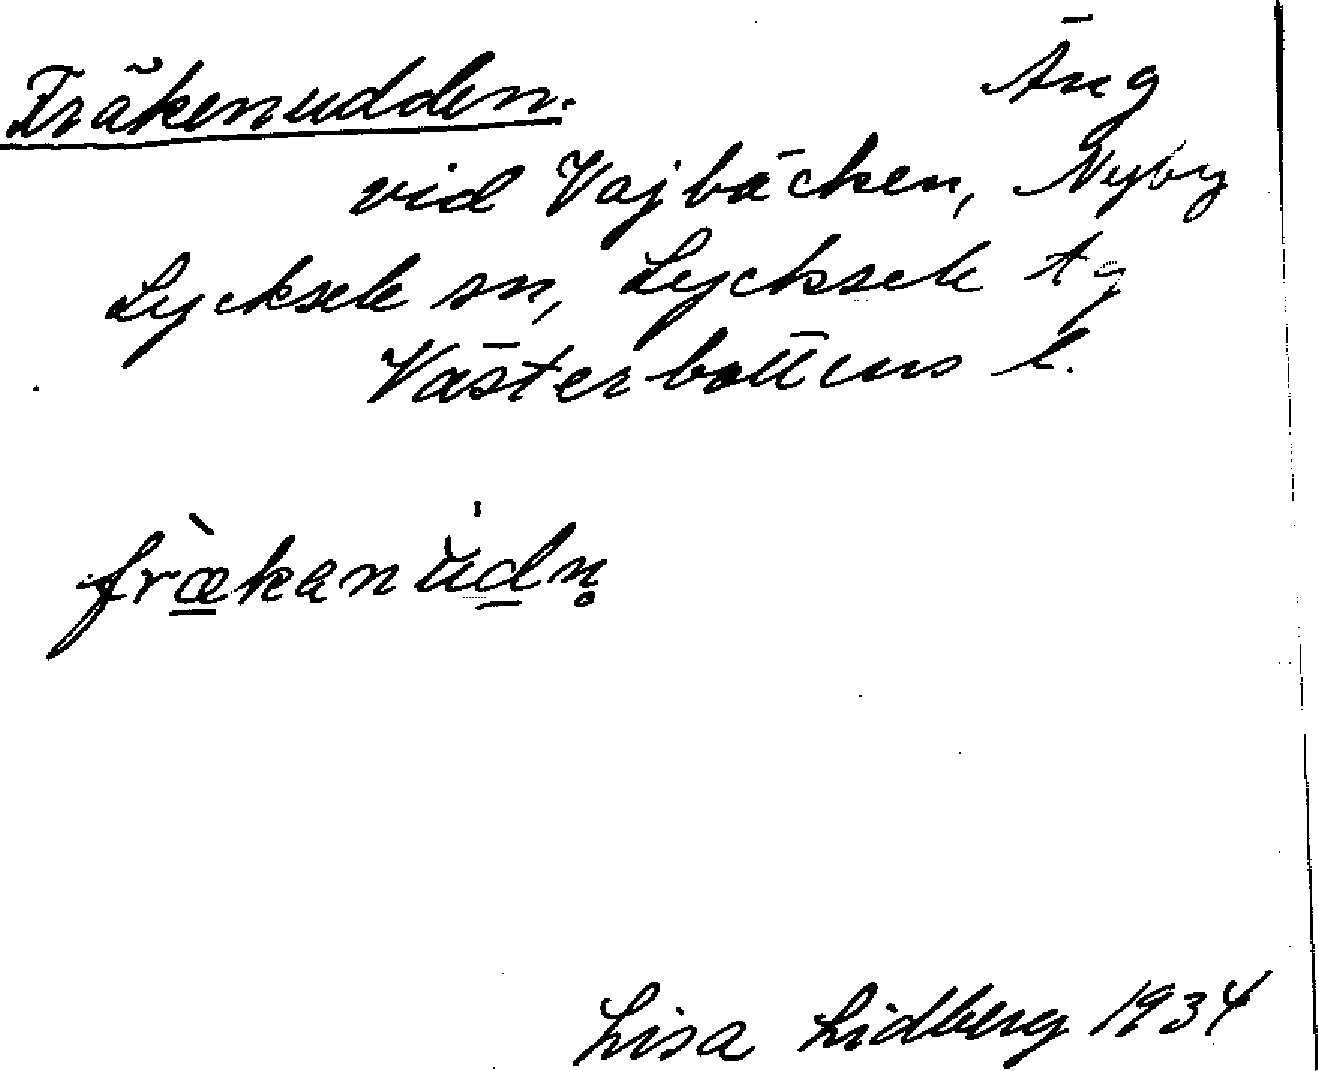 Fräkenudden. Äng
vid Vajbäcken, Nyby
Lycksele sn, Lycksele tg
Västerbottens l.
frækanudn̥
Lisa Lidberg 1934